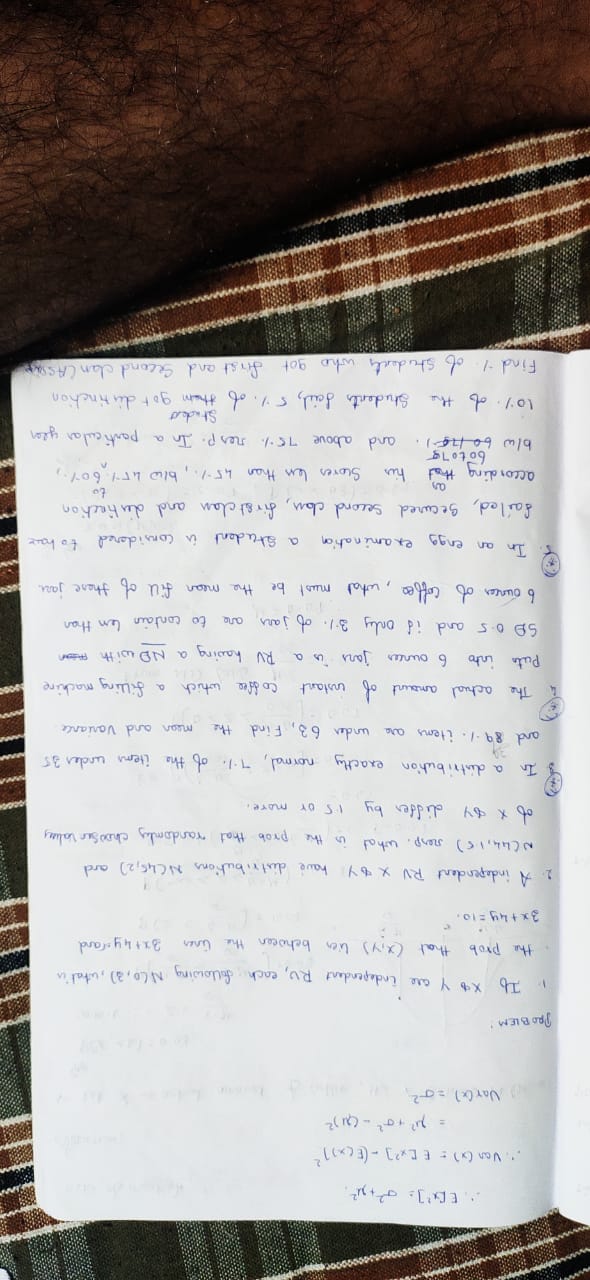 ∴ E[x²] = σ²+μ².
∴ Var(x) = E[x²] - (E(x))²
= μ²+σ² - (μ)²
Var(x) = σ²
PROBLEM:
1. If X & Y are independent RV, each following N(0,3), what is
the prob that (x,y) lies between the lines 3x+4y=5 and
3x+4y=10.
2. A independent RV X & Y have distributions N(45,2) and
N(44,1.5) resp. what is the prob that randomly chosen values
of X & Y differ by 1.5 or more.
3. In a distribution exactly normal, 7% of the items under 35
and 89% items are under 63, Find the mean and variance
4. The actual amount of instant coffee which a filling machine
puts into 6 ounces jars is a RV having a ND with
SD 0.5 and if only 3% of jars are to contain less than
6 ounces of coffee, what must be the mean fill of these jars
5. In an engg examination a student is considered to have
failed, secured second class, first class and distinction
according as his scores less than 45%, b/w 45% to 60%,
b/w 60 to 75% and above 75% resp. In a particular year
10% of the students fail, 5% of students got distinction
Find % of students who got first and second class